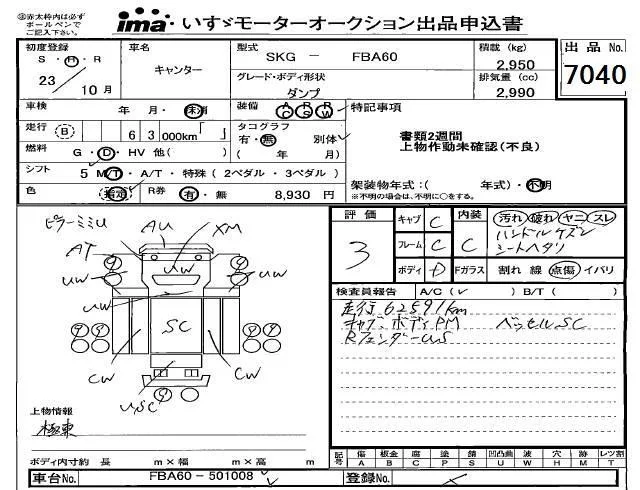 ※赤太枠内は必ず
ボールペンで
ご記入下さい。
ima いすゞモーターオークション出品申込書
初度登録
S・H・R
23
10月
車名
キャンター
型式
SKG － FBA60
グレード・ボディ形状
ダンプ
積載 (kg)
2,950
排気量 (cc)
2,990
出品 No.
7040
車検 年 月・抹消
装備 AC PS PW
特記事項
書類2週間
上物作動未確認(不良)
架装物年式：( 年式)・不明
※不明の場合は、不明に○をする。
走行 (B) 6 3 000km
タコグラフ
有・無 別体
( 年 月)
燃料 G・D・HV 他( )
シフト 5 M/T・A/T・特殊 (2ペダル・3ペダル)
色 指定
R券 有・無 8,930 円
ピラーミミU
AU
XM
AT
9
UW
9
UW
UW
UW
SC
9 9
9 9
CW
CW
USC
9
上物情報
極東
ボディ内寸約 長 m×幅 m×高 m
評価
3
キャブ C
フレーム C
ボディ D
内装
C
Fガラス
汚れ 破れ ヤニ スレ
ハンドルケズレ
シートヘタリ
割れ 線 点傷 イバリ
検査員報告 A/C ( ) B/T ( )
走行62591km
キャブ、ボディPM ベッセルSC
RフェンダーUS
記号
傷 板金 腐 塗 錆 凹凸曲 波 穴 跡 レツ割
A B C P S U W H M T
車台No. FBA60－501008
登録No.